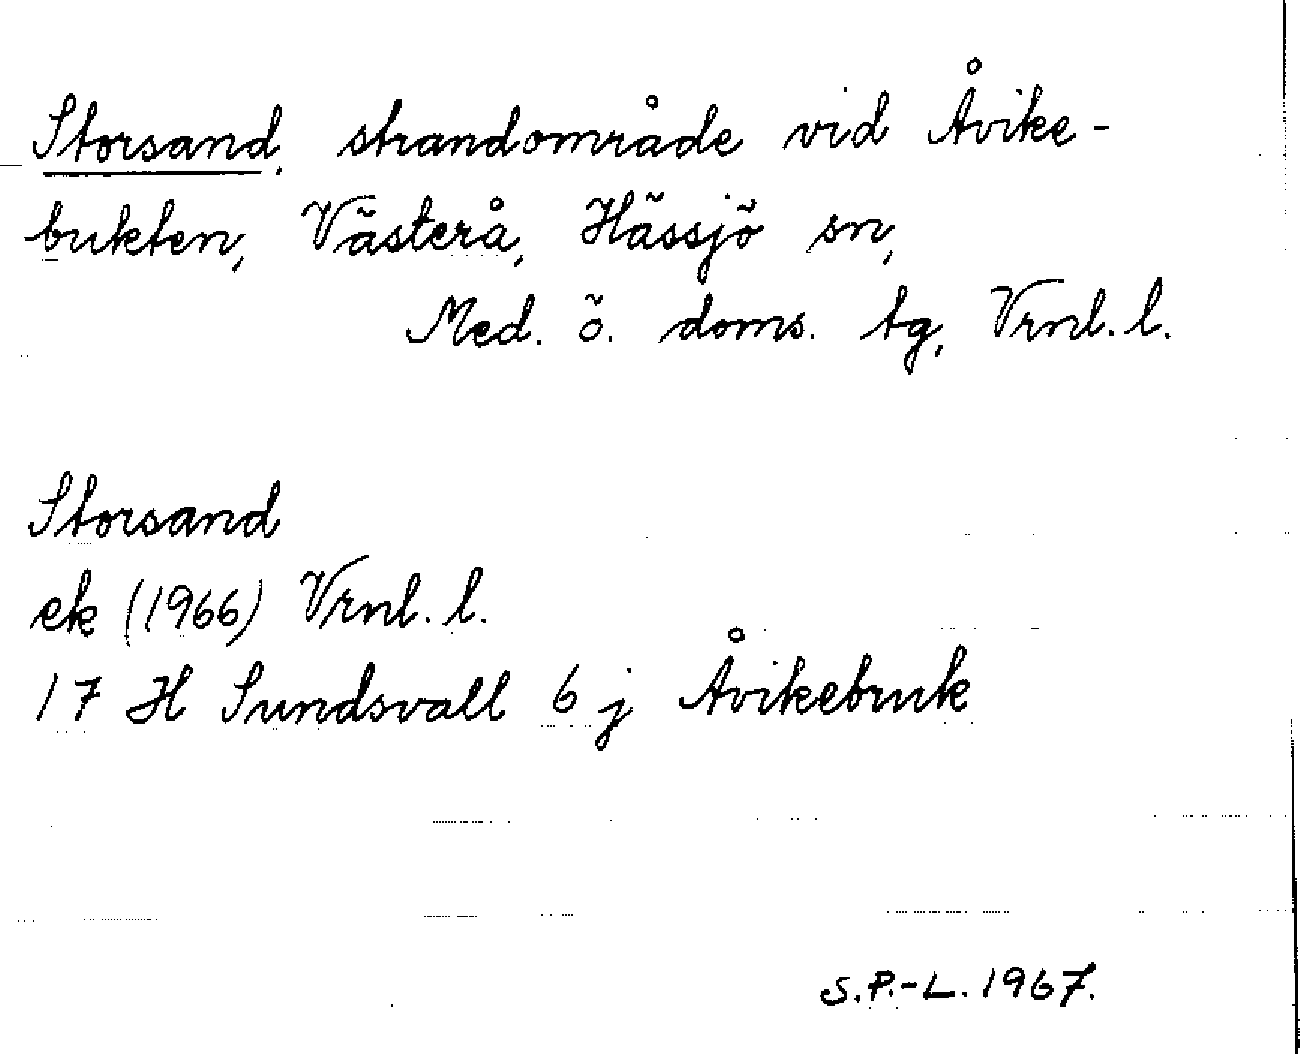 Storsand, strandområde vid Åvike-
bukten, Västerå, Hässjö sn,
Med. ö. doms. tg, Vrnl. l.
Storsand
ek (1966) Vrnl. l.
17 H Sundsvall 6 j Åvikebruk
S.P.-L. 1967.